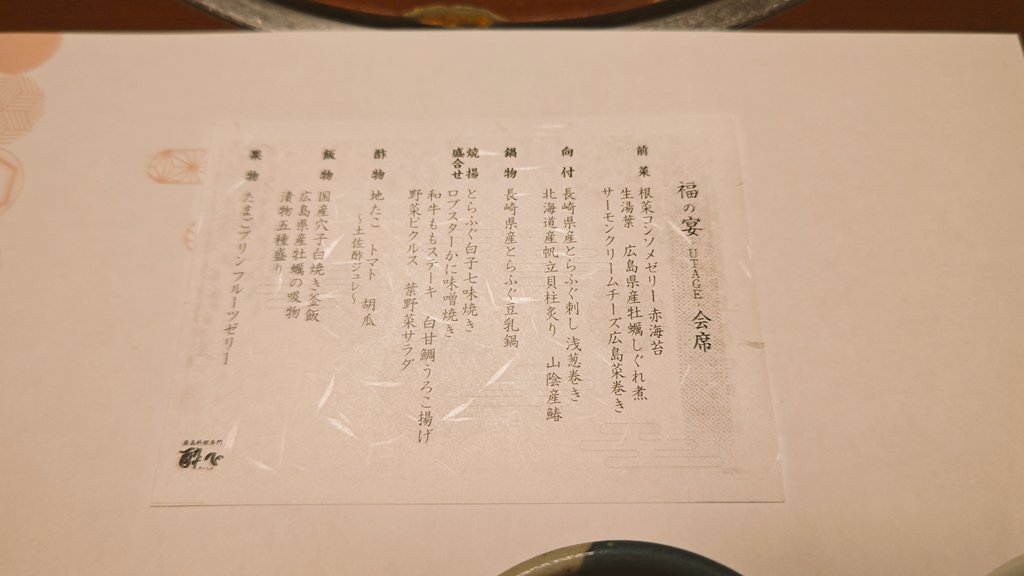 福の宴 UTAGE 会席
前菜 根菜コンソメゼリー 赤海苔
生湯葉 広島県産牡蠣しぐれ煮
サーモンクリームチーズ広島菜巻き
向付 長崎県産とらふぐ刺し 浅葱巻き
北海道産帆立貝柱炙り 山陰産鰆
鍋物 長崎県産とらふぐ豆乳鍋
焼揚盛合せ とらふぐ白子七味焼き
ロブスターかに味噌焼き
和牛ももステーキ 白甘鯛うろこ揚げ
野菜ピクルス 葉野菜サラダ
酢物 地たこ トマト 胡瓜
〜土佐酢ジュレ〜
飯物 国産穴子白焼き釜飯
広島県産牡蠣の吸物
漬物五種盛り
果物 たまごプリン フルーツゼリー
酔心